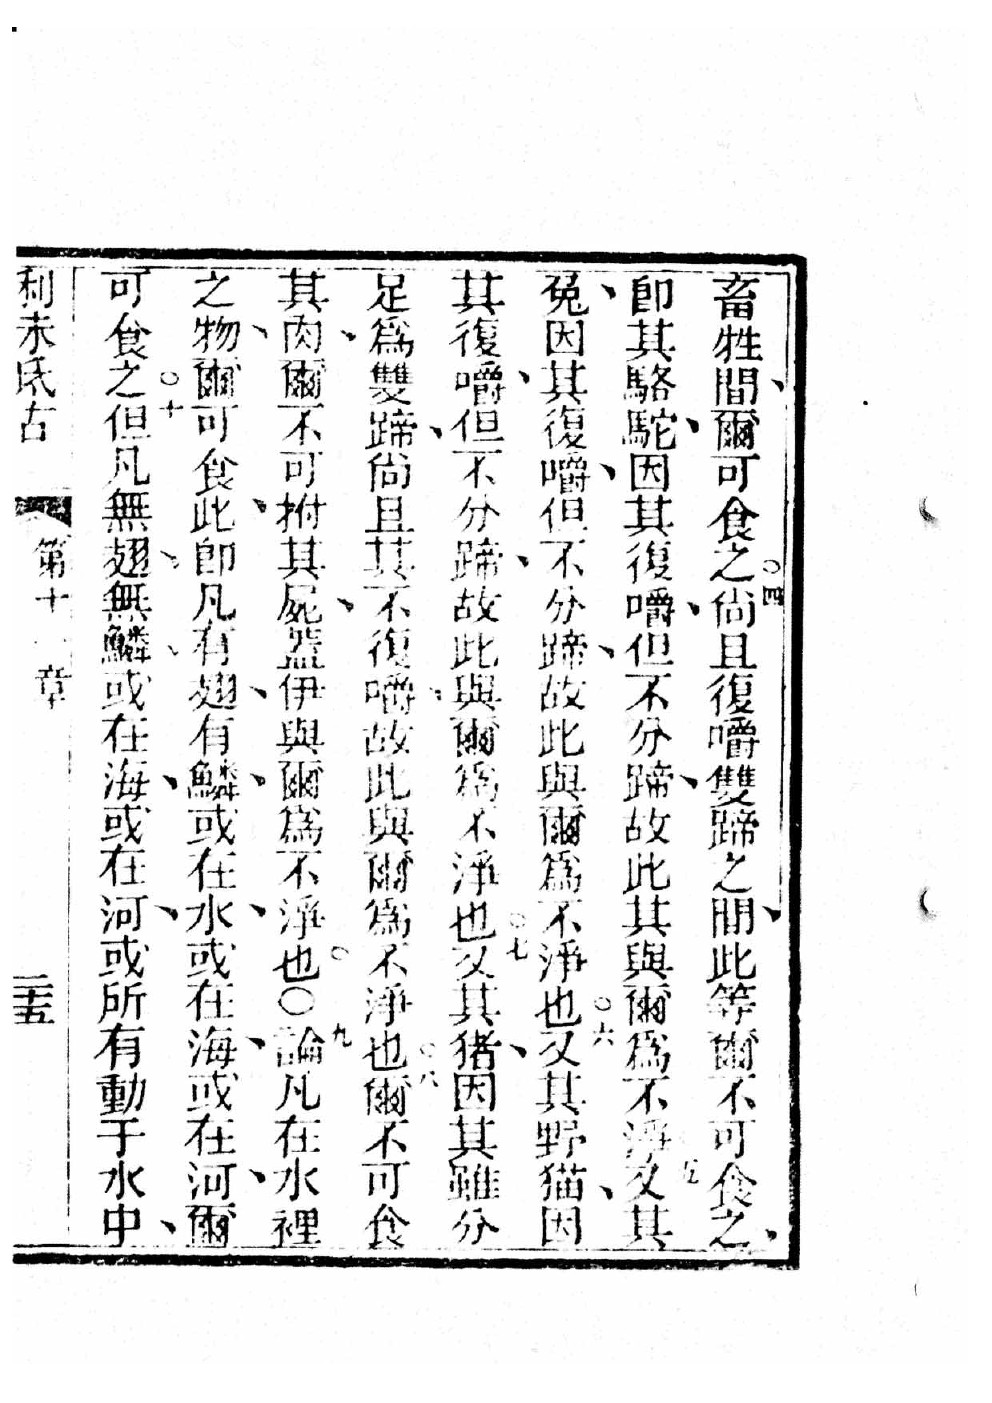 畜牲間爾可食之○四尙且復嚼雙蹄之間此等爾不可食之
卽其駱駝因其復嚼但不分蹄故此其與爾爲不淨○五又其
兔因其復嚼但不分蹄故此與爾爲不淨也○六又其野猫因
其復嚼但不分蹄故此與爾爲不淨也○七又其猪因其雖分
足爲雙蹄尙且其不復嚼故此與爾爲不淨也○八爾不可食
其肉爾不可拊其屍葢伊與爾爲不淨也○○九論凡在水裡
之物爾可食此卽凡有翅有鱗或在水或在海或在河爾
可食之○十但凡無翅無鱗或在海或在河或所有動于水中
利未氏古 第十一章 三十五